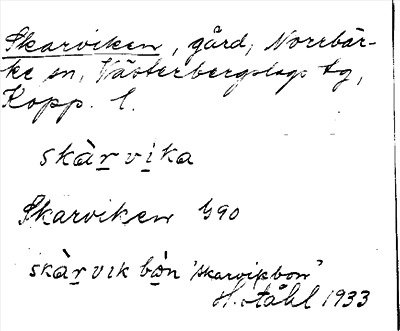 Skarviken, gård, Norrbär-
ke sn, Västerbergslags tg,
Kopp. l.
skàr̠ vi̠ka
Skarviken G90
skàr̠vik bò̠n "skarvikbon"
H. Ståhl 1933